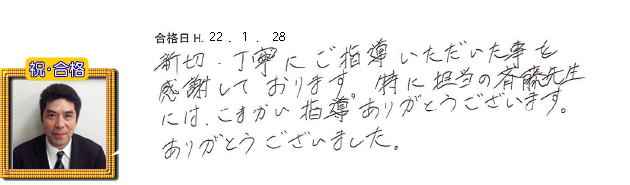 合格日 H. 22 . 1 . 28
祝・合格
新切・丁寧にご指導いただいた事を
感謝しております。特に担当の斉藤先生
には、こまかい指導ありがとうございます。
ありがとうございました。